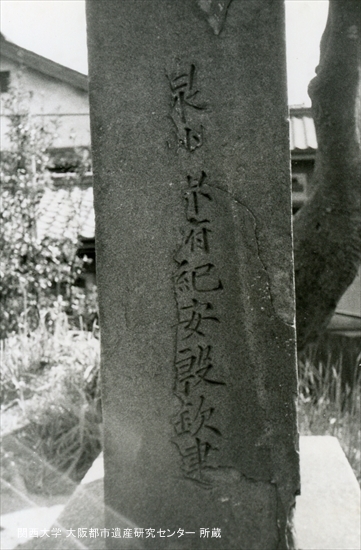 泉州 界府紀安殷欽建
関西大学 大阪都市遺産研究センター 所蔵